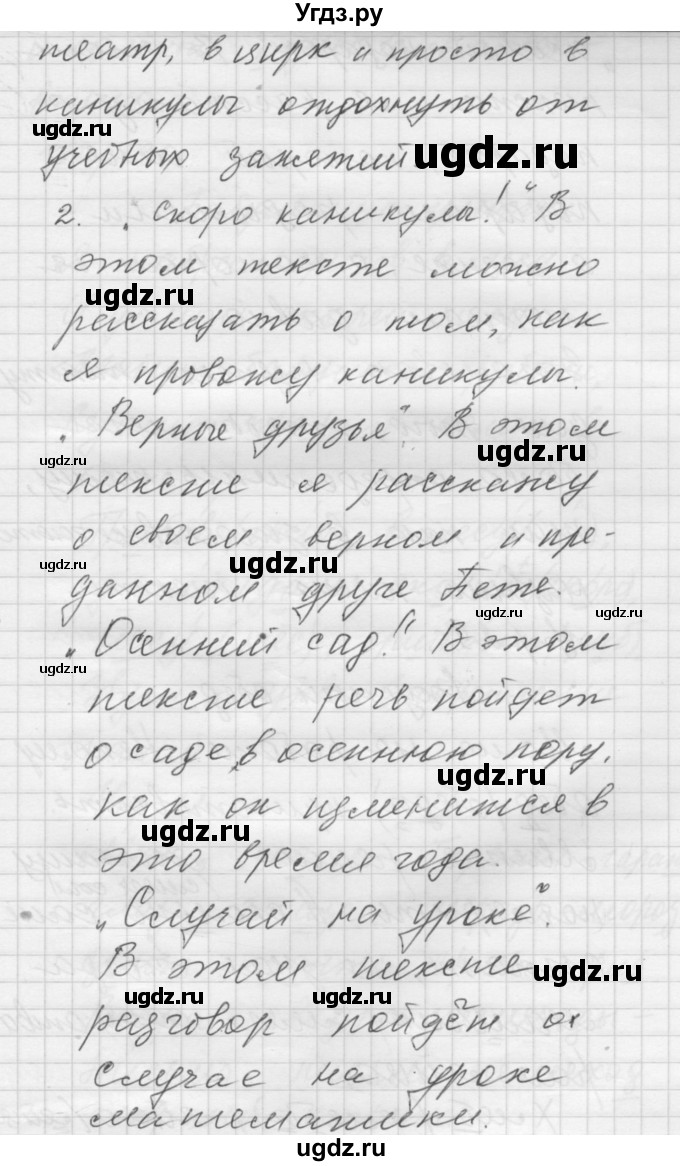 Угдз.ру
театр, в цирк и просто в
каникулы отдохнуть от
ugdz.ru ugdz.ru
учебных занятий
2. „Скоро каникулы!“ В
этом тексте можно
ugdz.ru
рассказать о том, как
я провожу каникулы.
„Верные друзья“. В этом
ugdz.ru ugdz.ru
тексте я расскажу
о своем верном и пре-
ugdz.ru ugdz.ru
данном друге Пете.
ugdz.ru ugdz.ru
„Осенний сад!“ В этом
ugdz.ru
тексте речь пойдет
о саде в осеннюю пору,
ugdz.ru
как он изменится в
ugdz.ru
это время года.
„Случай на уроке“.
В этом тексте
ugdz.ru
ugdz.ru ugdz.ru
разговор пойдёт о
случае на уроке
математики.
ugdz.ru